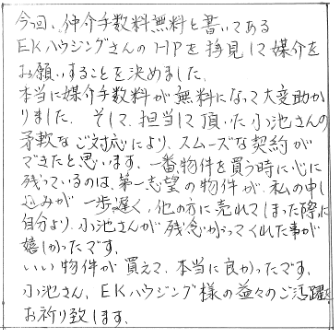 今回、仲介手数料無料と書いてある
EKハウジングさんのHPを拝見して媒介を
お願いすることを決めました。
本当に媒介手数料が無料になって大変助か
りました。そして、担当して頂いた小池さんの
柔軟なご対応により、スムーズな契約が
できたと思います。一番、物件を買う時に心に
残っているのは、第一志望の物件が、私の申し
込みが一歩遅く、他の方に売れてしまった際に
自分より、小池さんが残念がってくれた事が
嬉しかったです。
いい物件が買えて、本当に良かったです。
小池さん、EKハウジング様の益々のご活躍を
お祈り致します。